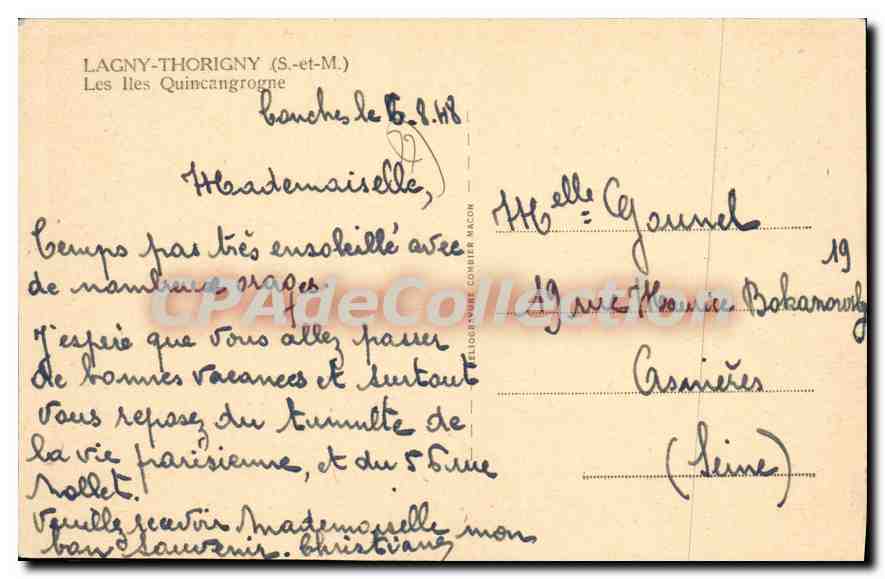 LAGNY-THORIGNY (S.-et-M.)
Les Iles Quincangrogne
Conches le 6.8.48
Mademoiselle,
Temps pas très ensoleillé avec
de nombreux orages.
J'espère que vous allez passer
de bonnes vacances et surtout
vous reposez du tumulte de
la vie parisienne, et du 56 rue
Nollet.
Veuillez recevoir Mademoiselle mon
bon souvenir. Christiane
HELIOGRAVURE COMBIER MACON
Melle Gounel
19
19 rue Maurice Bokanowsky
Asnières
(Seine)
CPAdeCollection